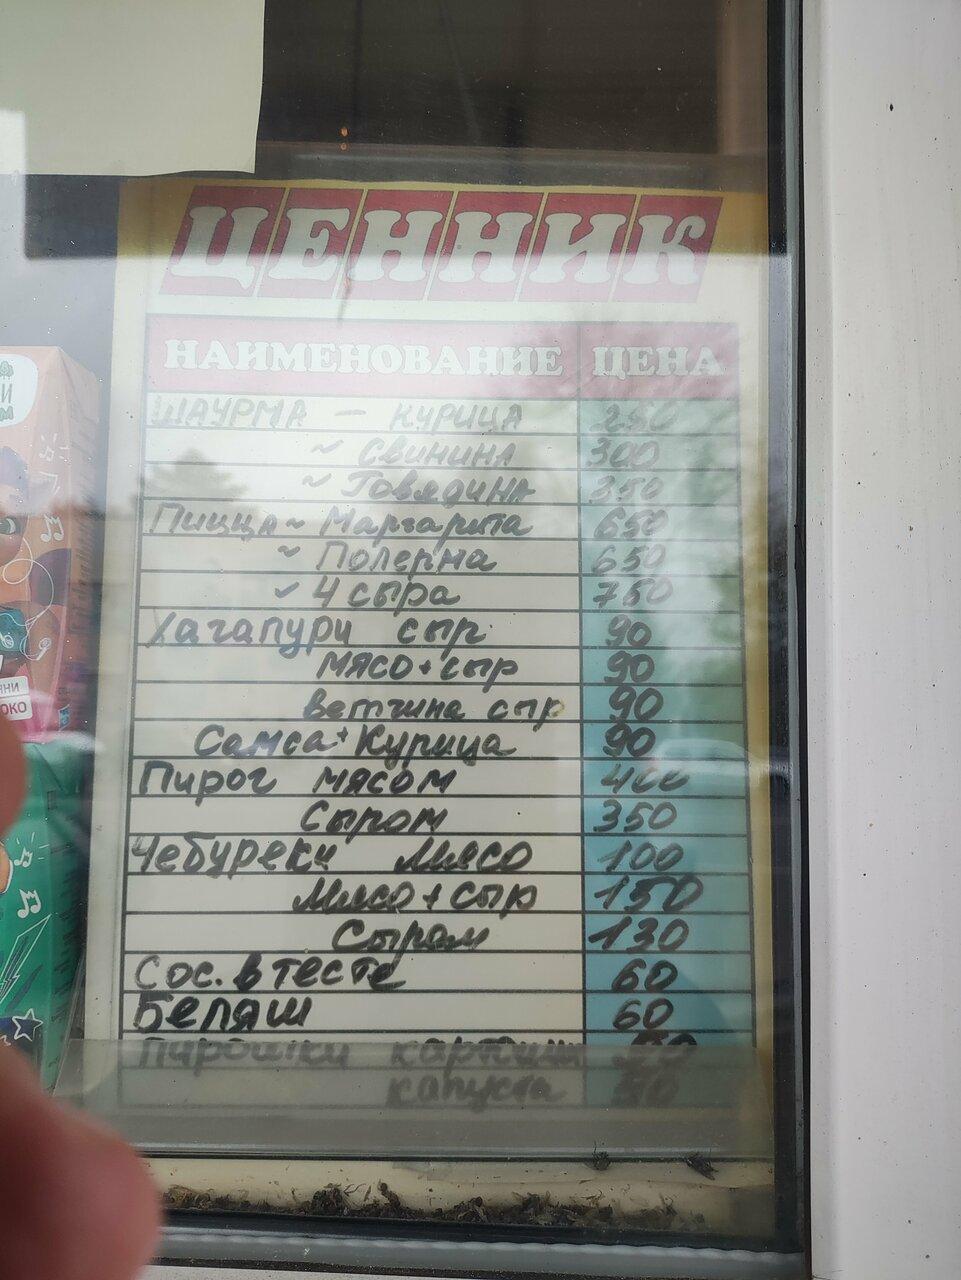 ЦЕННИК
НАИМЕНОВАНИЕ ЦЕНА
ШАУРМА - КУРИЦА 250
~ Свинина 300
~ Говядина 350
Пицца ~ Маргарита 650
~ Полерма 650
~ 4 сыра 750
Хачапури сыр 90
мясо+сыр 90
ветчина сыр 90
Самса+Курица 90
Пирог мясом 400
Сыром 350
Чебуреки Мясо 100
Мясо+сыр 150
Сыром 130
Сос. в тесте 60
Беляш 60
Пирошки картошка
капуста 50
И
НИ
ОКО